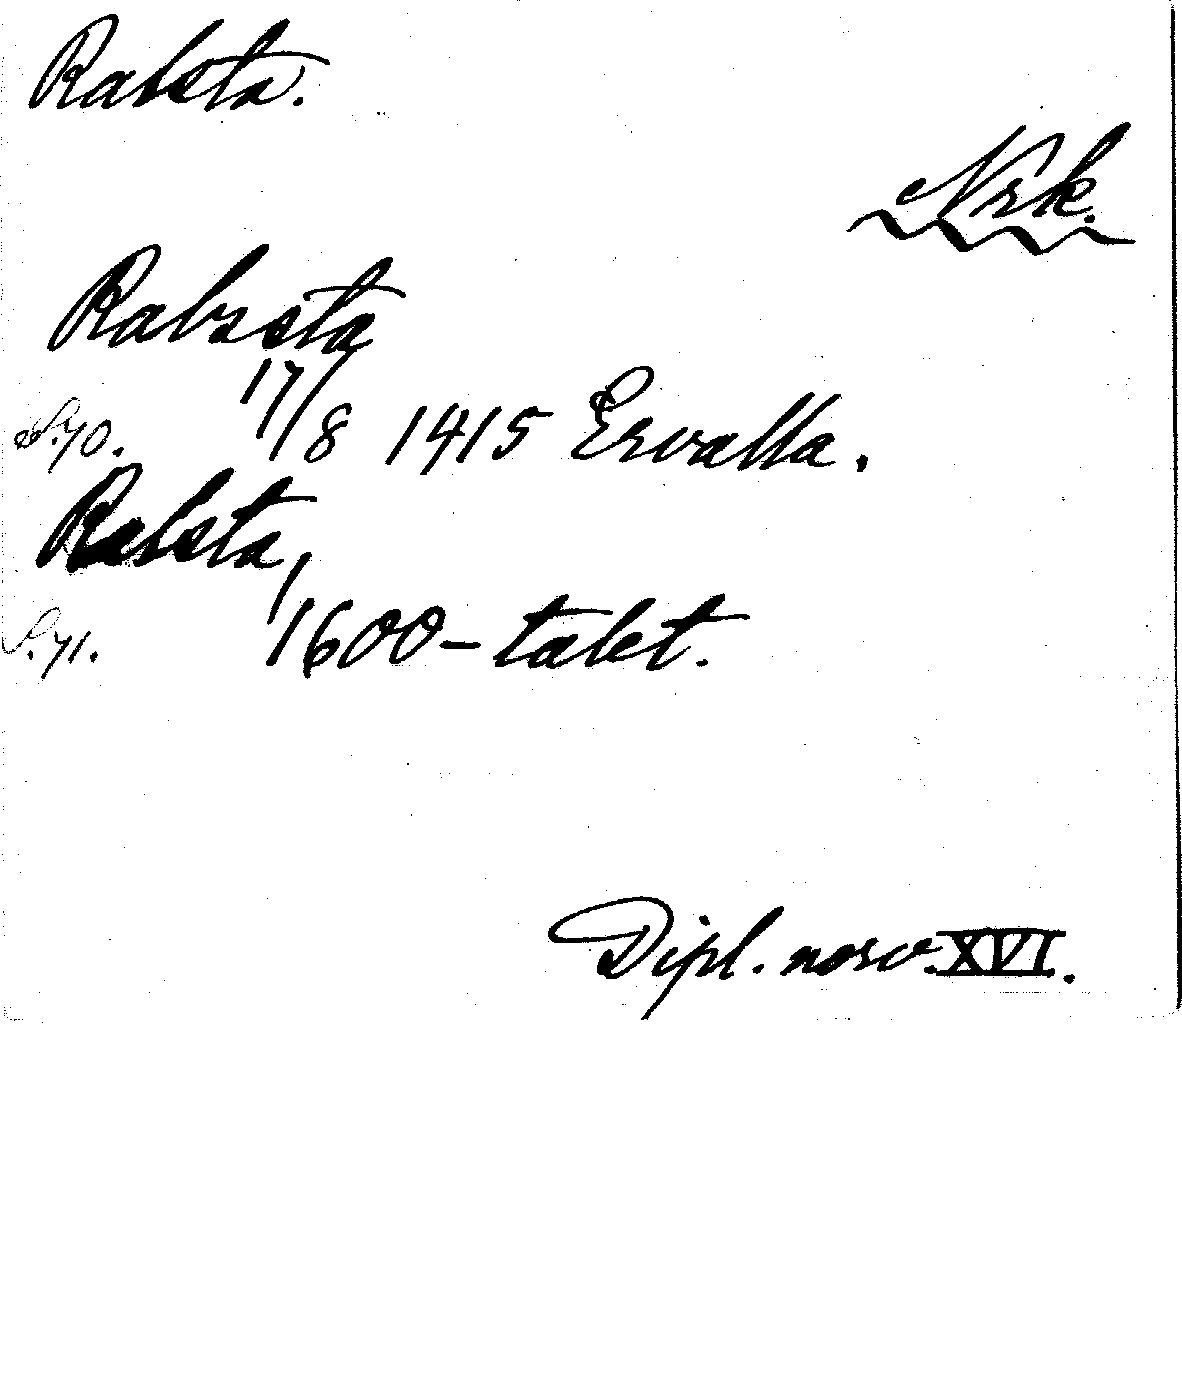 Rabsta.
Nrk.
Rabzsta
S.70. 17/8 1415 Ervalla.
Rabsta,
S.71. 1600-talet.
Dipl. norv. XVI.